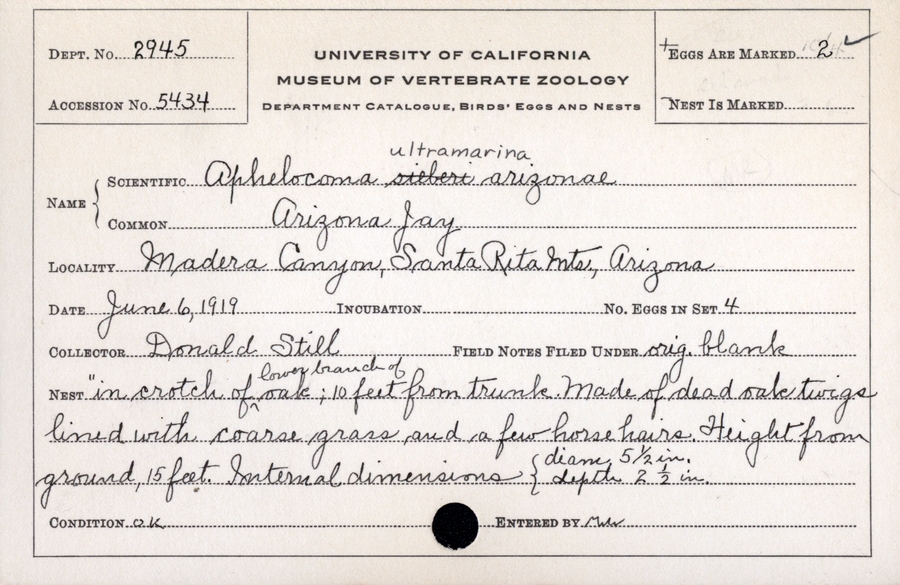 DEPT. No. 2945
ACCESSION No. 5434
UNIVERSITY OF CALIFORNIA
MUSEUM OF VERTEBRATE ZOOLOGY
DEPARTMENT CATALOGUE, BIRDS' EGGS AND NESTS
+EGGS ARE MARKED 2 ✓
NEST IS MARKED
ultramarina
NAME { SCIENTIFIC Aphelocoma sieberi arizonae
COMMON Arizona Jay
LOCALITY Madera Canyon, Santa Rita Mts., Arizona
DATE June 6, 1919 INCUBATION No. EGGS IN SET 4
COLLECTOR Donald Still FIELD NOTES FILED UNDER orig. blank
lower branch of
NEST "in crotch of ^ oak; 10 feet from trunk. Made of dead oak twigs
lined with coarse grass and a few horse hairs. Height from
ground, 15 feet. Internal dimensions { diam. 5 1/2 in.
depth 2 1/2 in.
CONDITION OK ENTERED BY